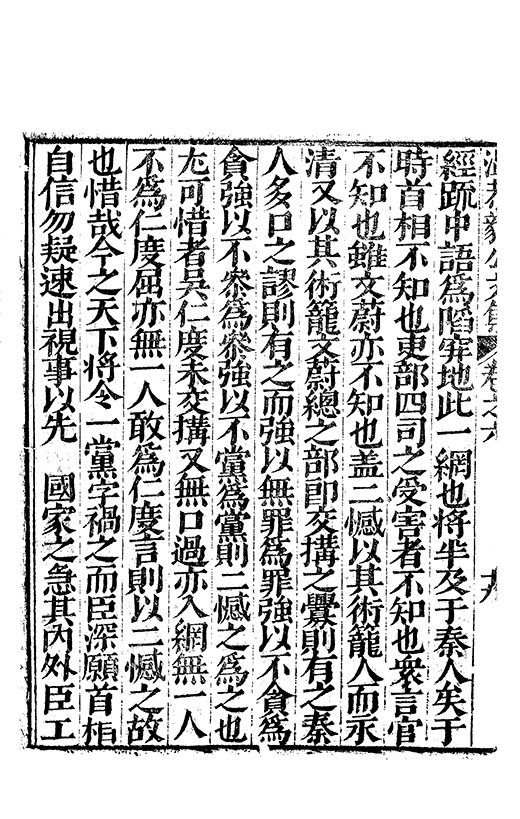 溫恭毅公文集 卷之六
經疏中語爲陷穽地此一網也将半及于秦人矣于
時首相不知也吏部四司之受害者不知也衆言官
不知也雖文蔚亦不知也盖二憾以其術籠人而永
清又以其術籠文蔚總之部卽交搆之釁則有之秦
人多口之謬則有之而強以無罪爲罪強以不貪爲
貪強以不叅爲叅強以不黨爲黨則二憾之爲之也
尤可惜者吳仁度未交搆又無口過亦入網無一人
不爲仁度屈亦無一人敢爲仁度言則以二憾之故
也惜哉今之天下将令一黨字禍之而臣深願首相
自信勿疑速出視事以先 國家之急其內外臣工